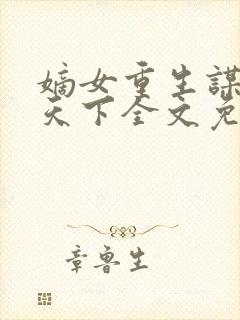 嫡女重生謀
天下全文免
章魯生